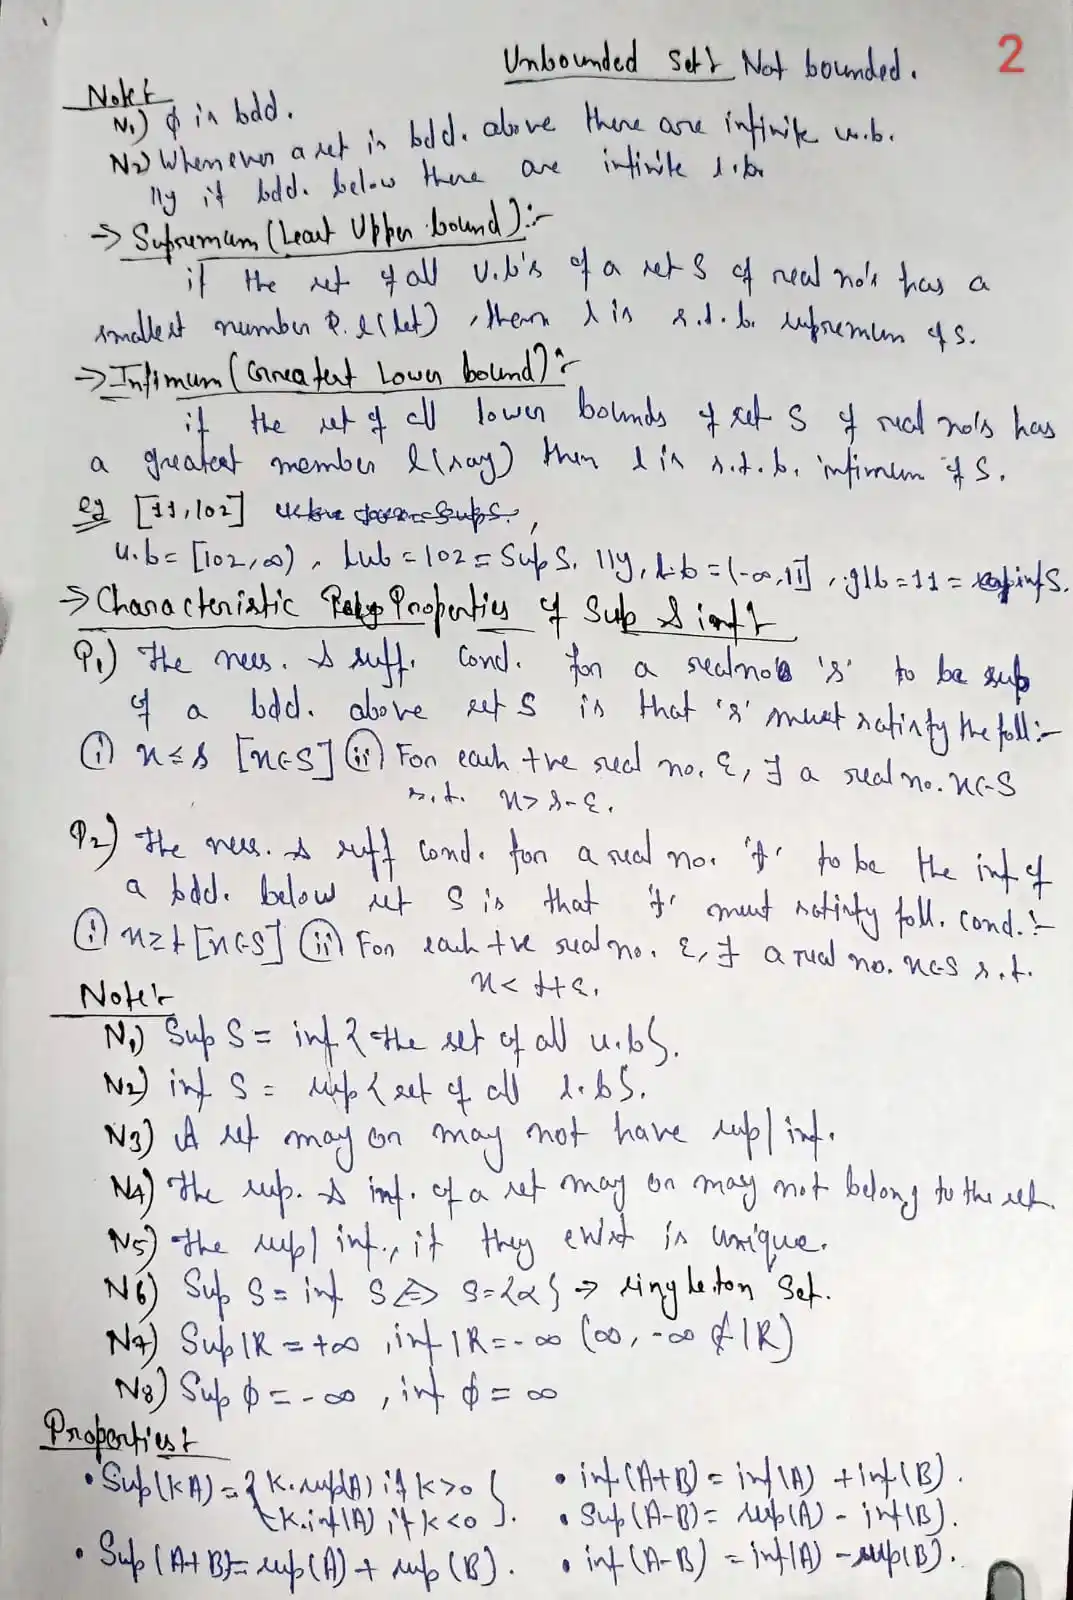 2
Unbounded Set :- Not bounded.
Note :-
N1) φ is bdd.
N2) Whenever a set is bdd. above there are infinite u.b.
lly if bdd. below there are infinite l.b.
→ Supremum (Least Upper bound) :-
if the set of all U.b's of a set S of real no's has a
smallest number l (let), then l is s.t.b. supremum of S.
→ Infimum (Greatest Lower bound) :-
if the set of all lower bounds of set S of real no's has
a greatest member l (say) then l is s.t.b. infimum of S.
eg [11,102]
u.b = [102,∞), Lub = 102 = Sup S. lly, l.b = (-∞,11], glb = 11 = inf S.
→ Characteristic Properties of Sup & inf :-
P1) The ness. & suff. cond. for a real no 's' to be sup
of a bdd. above set S is that 's' must satisfy the foll :-
(i) x ≤ s [x∈S] (ii) For each +ve real no. ε, ∃ a real no. x∈S
s.t. x > s-ε.
P2) The ness. & suff cond. for a real no. 't' to be the inf of
a bdd. below set S is that 't' must satisfy foll. cond. :-
(i) x ≥ t [x∈S] (ii) For each +ve real no. ε, ∃ a real no. x∈S s.t.
x < t+ε.
Note :-
N1) Sup S = inf {the set of all u.b}.
N2) inf S = sup {set of all l.b}.
N3) A set may or may not have sup/inf.
N4) The sup. & inf. of a set may or may not belong to the set.
N5) The sup/inf., if they exist is unique.
N6) Sup S = inf S ⇔ S={α} → singleton Set.
N7) Sup IR = +∞, inf IR = -∞ (∞, -∞ ∉ IR)
N8) Sup φ = -∞, inf φ = ∞
Properties :-
• Sup (kA) = { K. sup(A) if K>0
K. inf(A) if K<0 }.
• Sup (A+B) = sup(A) + sup (B).
• inf (A+B) = inf(A) + inf(B).
• Sup (A-B) = sup(A) - inf(B).
• inf (A-B) = inf(A) - sup(B).